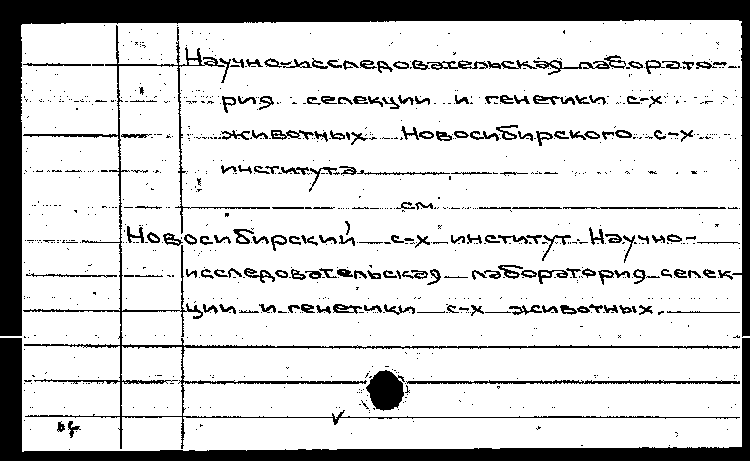 Научно-исследовательская лаборато-
рия селекции и генетики с-х
животных Новосибирского с-х
института.
см.
Новосибирский с-х институт. Научно-
исследовательская лаборатория селек-
ции и генетики с-х животных.